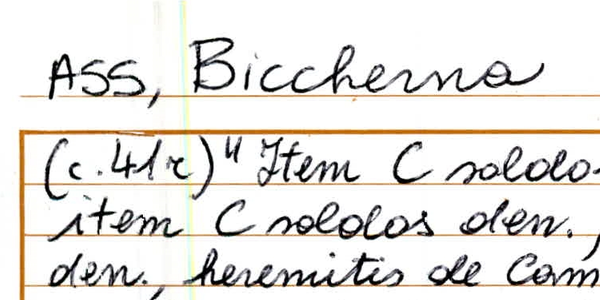 ASS, Biccherna
(c. 41r) " Item C soldo
item C soldos den.,
den., heremitis de Cam